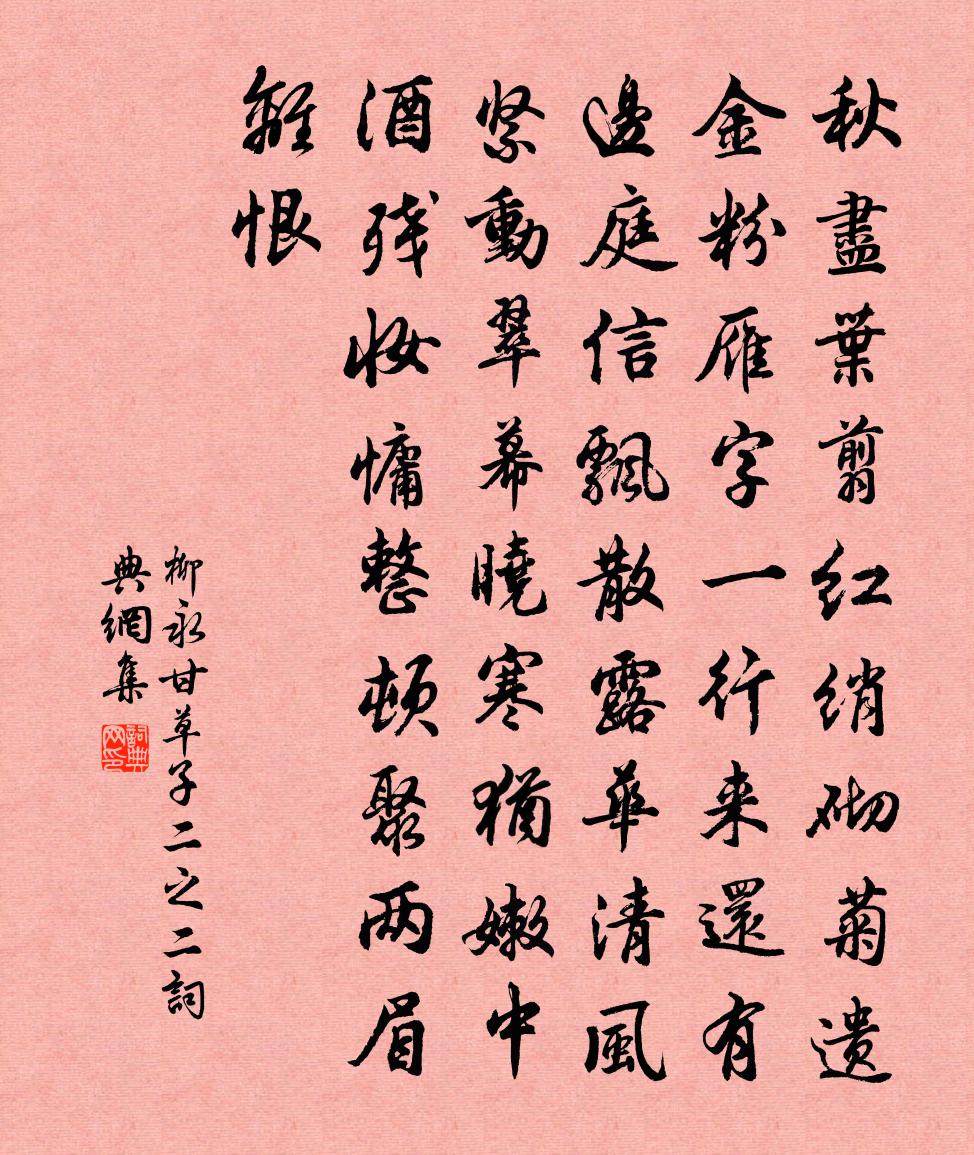 秋盡葉剪红绡砌菊遗
金粉雁字一行来還有
邊庭信飄散露華清風
紧動翠幕曉寒猶嫩中
酒残妆慵整顿聚两眉
離恨
柳永甘草子二之二詞
典網集
詞典网印